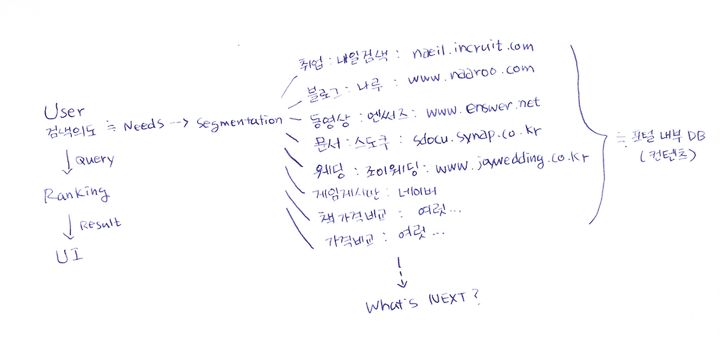 User
검색의도 ≒ Needs --> Segmentation
↓ Query
Ranking
↓ Result
UI
취업 : 내일검색 : naeil.incruit.com
블로그 : 나루 : www.naaroo.com
동영상 : 엔써즈 : www.enswer.net
문서 : 스도쿠 : sdocu.synap.co.kr
웨딩 : 조이웨딩 : www.joywedding.co.kr
게임게시판 : 네이버
책가격비교 : 여럿...
가격비교 : 여럿...
What's NEXT?
≒ 포털 내부 DB
(컨텐츠)